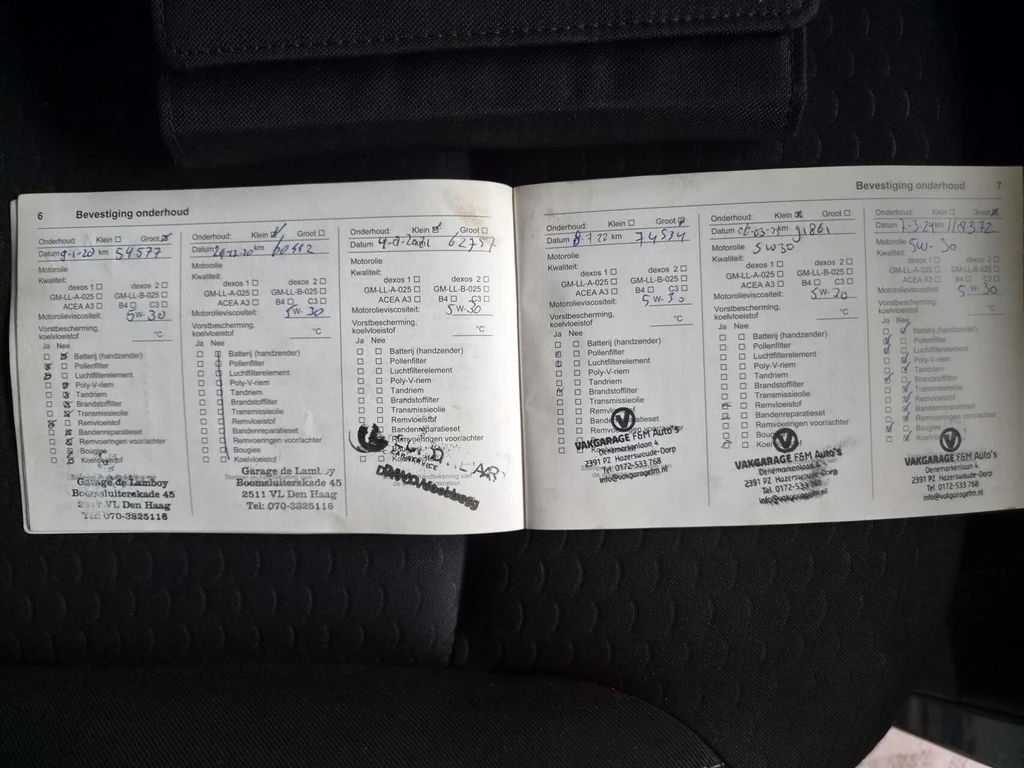 6 Bevestiging onderhoud
Onderhoud: Klein Groot
Datum 9-1-20 km 54577
Motorolie
Kwaliteit:
dexos 1 dexos 2
GM-LL-A-025 GM-LL-B-025
ACEA A3 B4 C3
Motorolieviscositeit: 5W-30
Vorstbescherming, koelvloeistof °C
Ja Nee
Batterij (handzender)
Pollenfilter
Luchtfilterelement
Poly-V-riem
Tandriem
Brandstoffilter
Transmissieolie
Remvloeistof
Bandenreparatieset
Remvoeringen voor/achter
Bougies
Koelvloeistof
Garage de Lamboy
Boomsluiterskade 45
2511 VL Den Haag
Tel: 070-3825116
Onderhoud: Klein Groot
Datum km 60552
Motorolie
Kwaliteit:
dexos 1 dexos 2
GM-LL-A-025 GM-LL-B-025
ACEA A3 B4 C3
Motorolieviscositeit: 5W-30
Vorstbescherming, koelvloeistof °C
Ja Nee
Batterij (handzender)
Pollenfilter
Luchtfilterelement
Poly-V-riem
Tandriem
Brandstoffilter
Transmissieolie
Remvloeistof
Bandenreparatieset
Remvoeringen voor/achter
Bougies
Koelvloeistof
Garage de Lamboy
Boomsluiterskade 45
2511 VL Den Haag
Tel: 070-3825116
Onderhoud: Klein Groot
Datum 62757
Motorolie
Kwaliteit:
dexos 1 dexos 2
GM-LL-A-025 GM-LL-B-025
ACEA A3 B4 C3
Motorolieviscositeit: 5W-30
Vorstbescherming, koelvloeistof °C
Ja Nee
Batterij (handzender)
Pollenfilter
Luchtfilterelement
Poly-V-riem
Tandriem
Brandstoffilter
Transmissieolie
Remvloeistof
Bandenreparatieset
Remvoeringen voor/achter
Bevestiging onderhoud 7
Onderhoud: Klein Groot
Datum 8-7-22 km 74574
Motorolie
Kwaliteit:
dexos 1 dexos 2
GM-LL-A-025 GM-LL-B-025
ACEA A3 B4 C3
Motorolieviscositeit: 5W-30
Vorstbescherming, koelvloeistof °C
Ja Nee
Batterij (handzender)
Pollenfilter
Luchtfilterelement
Poly-V-riem
Tandriem
Brandstoffilter
Transmissieolie
VAKGARAGE F&M AUTO'S
Denemarkenlaan 4
2391 PZ Hazerswoude-Dorp
Tel. 0172-533 768
info@vakgaragefm.nl
Onderhoud: Klein Groot
Datum km 91861
Motorolie 5W30
Kwaliteit:
dexos 1 dexos 2
GM-LL-A-025 GM-LL-B-025
ACEA A3 B4 C3
Motorolieviscositeit: 5W-30
Vorstbescherming, koelvloeistof °C
Ja Nee
Batterij (handzender)
Pollenfilter
Luchtfilterelement
Poly-V-riem
Tandriem
Brandstoffilter
Transmissieolie
Remvloeistof
Bandenreparatieset
VAKGARAGE F&M AUTO'S
Denemarkenlaan 4
2391 PZ Hazerswoude-Dorp
Tel. 0172-533 768
info@vakgaragefm.nl
Onderhoud: Klein Groot
Datum 7-3-24 km 118372
Motorolie 5W-30
Kwaliteit:
dexos 1 dexos 2
GM-LL-A-025 GM-LL-B-025
ACEA A3 B4 C3
Motorolieviscositeit: 5W-30
Vorstbescherming, koelvloeistof °C
Ja Nee
Batterij (handzender)
Pollenfilter
Luchtfilterelement
Poly-V-riem
Tandriem
Brandstoffilter
Transmissieolie
Remvloeistof
Bandenreparatieset
Remvoeringen voor/achter
Bougies
VAKGARAGE F&M AUTO'S
Denemarkenlaan 4
2391 PZ Hazerswoude-Dorp
Tel. 0172-533 768
info@vakgaragefm.nl